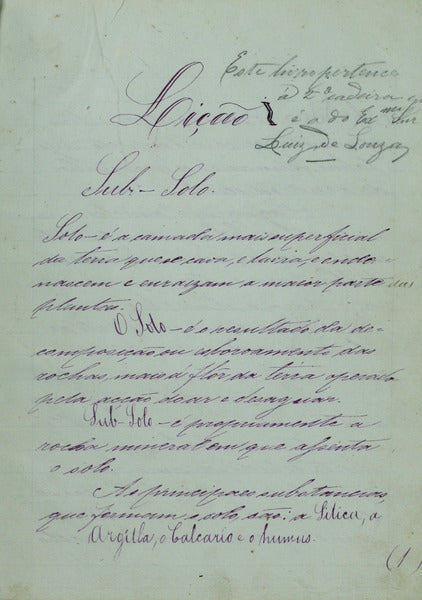 Este livro pertence
á 2ª cadeira q
é a do Exmo Snr
Luiz de Souza
Lição 1
Sub-Solo.
Solo - é a camada mais superficial
da terra que se cava, e lavra, e onde
nascem e enraizam a maior parte das
plantas.
O Solo - é o resultado da de-
composição ou esboroamento das
rochas, mais á flor da terra operado
pela acção do ar e das aguas.
Sub-Solo - é propriamente a
rocha mineral em que assenta
o solo.
As principaes substancias
que formam o solo, são: a Silica, a
Argilla, o Calcario e o humus.
(1)